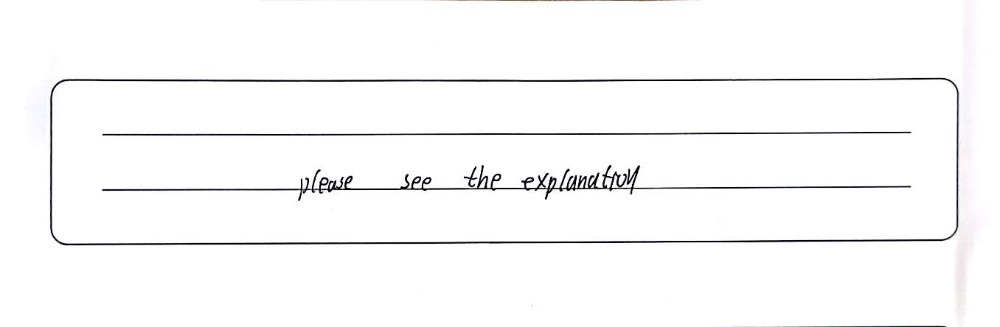 please see the explanation